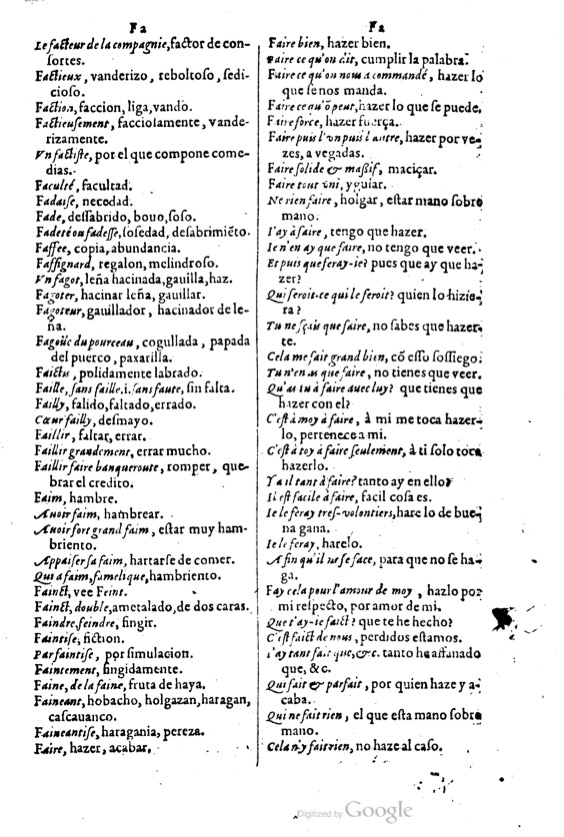 Fa
Le facteur de la compagnie, factor de con-
sortes.
Factieux, vanderizo, reboltoso, sedi-
cioso.
Faction, faccion, liga, vando.
Factieusement, facciosamente, vande-
rizamente.
Vn factiste, por el que compone come-
dias.
Faculté, facultad.
Fadaise, necedad.
Fade, dessabrido, bouo, soso.
Fadeté ou fadesse, sosedad, desabrimiẽto.
Faffee, copia, abundancia.
Faffignard, regalon, melindroso.
Vn fagot, leña hacinada, gauilla, haz.
Fagoter, hacinar leña, gauillar.
Fagoteur, gauillador, hacinador de le-
ña.
Fagoüe du pourceau, cogullada, papada
del puerco, paxarilla.
Faictis, polidamente labrado.
Faille, sans faille, i. sans faute, sin falta.
Failly, falido, faltado, errado.
Cœur failly, desmayo.
Faillir, faltar, errar.
Faillir grandement, errar mucho.
Faillir faire banqueroute, romper, que-
brar el credito.
Faim, hambre.
Auoir faim, hambrear.
Auoir fort grand faim, estar muy ham-
briento.
Appaiser sa faim, hartarse de comer.
Qui a faim, famelique, hambriento.
Fainct, vee Feint.
Fainct, double, ametalado, de dos caras.
Faindre, feindre, fingir.
Faintise, fiction.
Par faintise, por simulacion.
Faintement, fingidamente.
Faine, de la faine, fruta de haya.
Faineant, hobacho, holgazan, haragan,
cascauanco.
Faineantise, haragania, pereza.
Faire, hazer, acabar.
Fa
Faire bien, hazer bien.
Faire ce qu'on dit, cumplir la palabra.
Faire ce qu'on nous a commandé, hazer lo
que se nos manda.
Faire ce qu'õ peut, hazer lo que se puede.
Faire force, hazer fuerça.
Faire puis l'vn puis l'autre, hazer por ve-
zes, a vegadas.
Faire solide & massif, maciçar.
Faire tout vni, yguiar.
Ne rien faire, holgar, estar mano sobre
mano.
I'ay à faire, tengo que hazer.
Ie n'en ay que faire, no tengo que veer.
Et puis que feray-ie? pues que ay que ha-
zer?
Qui seroit-ce qui le feroit? quien lo hizie-
ra?
Tu ne sçais que faire, no sabes que hazer-
te.
Cela me fait grand bien, cõ esso sossiego.
Tu n'en as que faire, no tienes que veer.
Qu'as tu à faire auec luy? que tienes que
hazer con el?
C'est à moy à faire, à mi me toca hazer-
lo, pertenece a mi.
C'est à toy à faire seulement, à ti solo toca
hazerlo.
Y a il tant à faire? tanto ay en ello?
Il est facile à faire, facil cosa es.
Ie le feray tres-volontiers, hare lo de bue-
na gana.
Ie le feray, harelo.
A fin qu'il ne se face, para que no se ha-
ga.
Fay cela pour l'amour de moy, hazlo por
mi respecto, por amor de mi.
Que t'ay-ie faict? que te he hecho?
C'est faict de nous, perdidos estamos.
I'ay tant fait que, &c. tanto he affanado
que, &c.
Qui fait & parfait, por quien haze y a-
caba.
Qui ne fait rien, el que esta mano sobre
mano.
Cela n'y fait rien, no haze al caso.
Digitized by Google